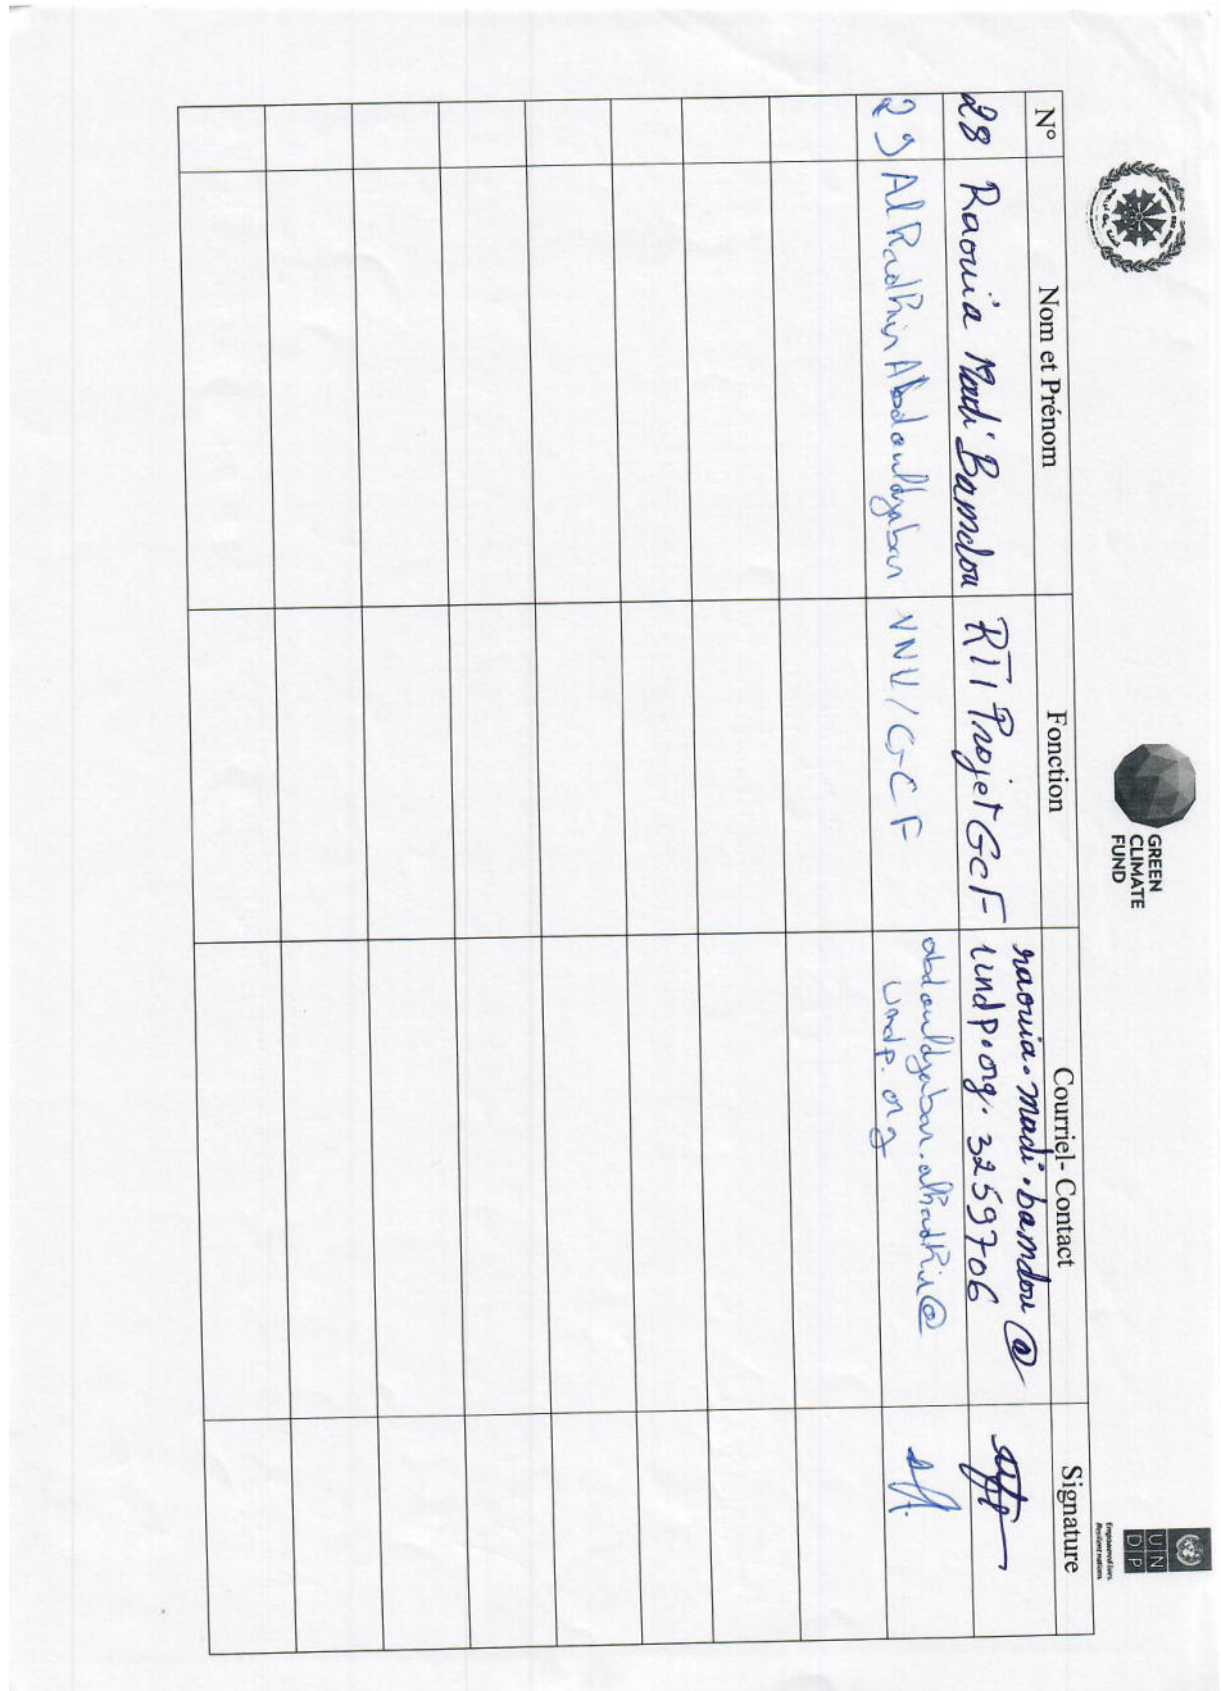 GREEN
CLIMATE
FUND
UN
DP
Empowered lives.
Resilient nations.
N° Nom et Prénom Fonction Courriel- Contact Signature
28 Raouia Madi Bamdou RTI Projet GCF raouia.madi.bamdou@
undp.org. 3259706
29 AlRadhin Abdouldjabar VNU/GCF abdouldjabar.alhadhir@
undp.org